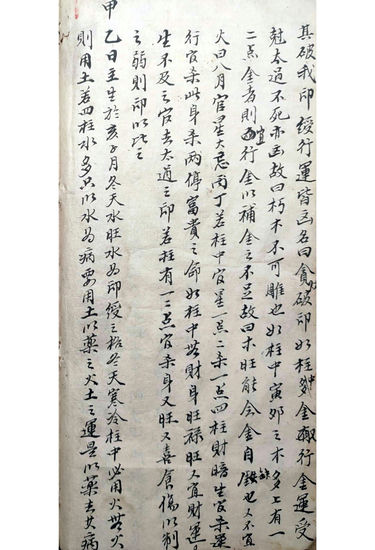 其破我印綬行運皆凶名曰貪破印如柱中金取行金運受
尅太過不死亦凶故曰朽木不可雕也如柱中寅夘之木多上有一
二点金者則宜行金以補金之不足故曰木旺能令金自缺也又不宜
火曰八月官星大忌丙丁若柱中官星一点二杀一点四柱財暗生官杀運
行官杀此身杀两停富貴之命如柱中財身旺祿旺又宜財運
生不及之官去太過之印若柱有一二点官杀身又旺又喜食傷以制
之弱則印以化之
甲乙日主生於亥子月冬天水旺水為印綬之格冬天寒冷柱中必用火無火
則用土若四柱水多只以水為病要用土以藥之火土之運是以藥去其病